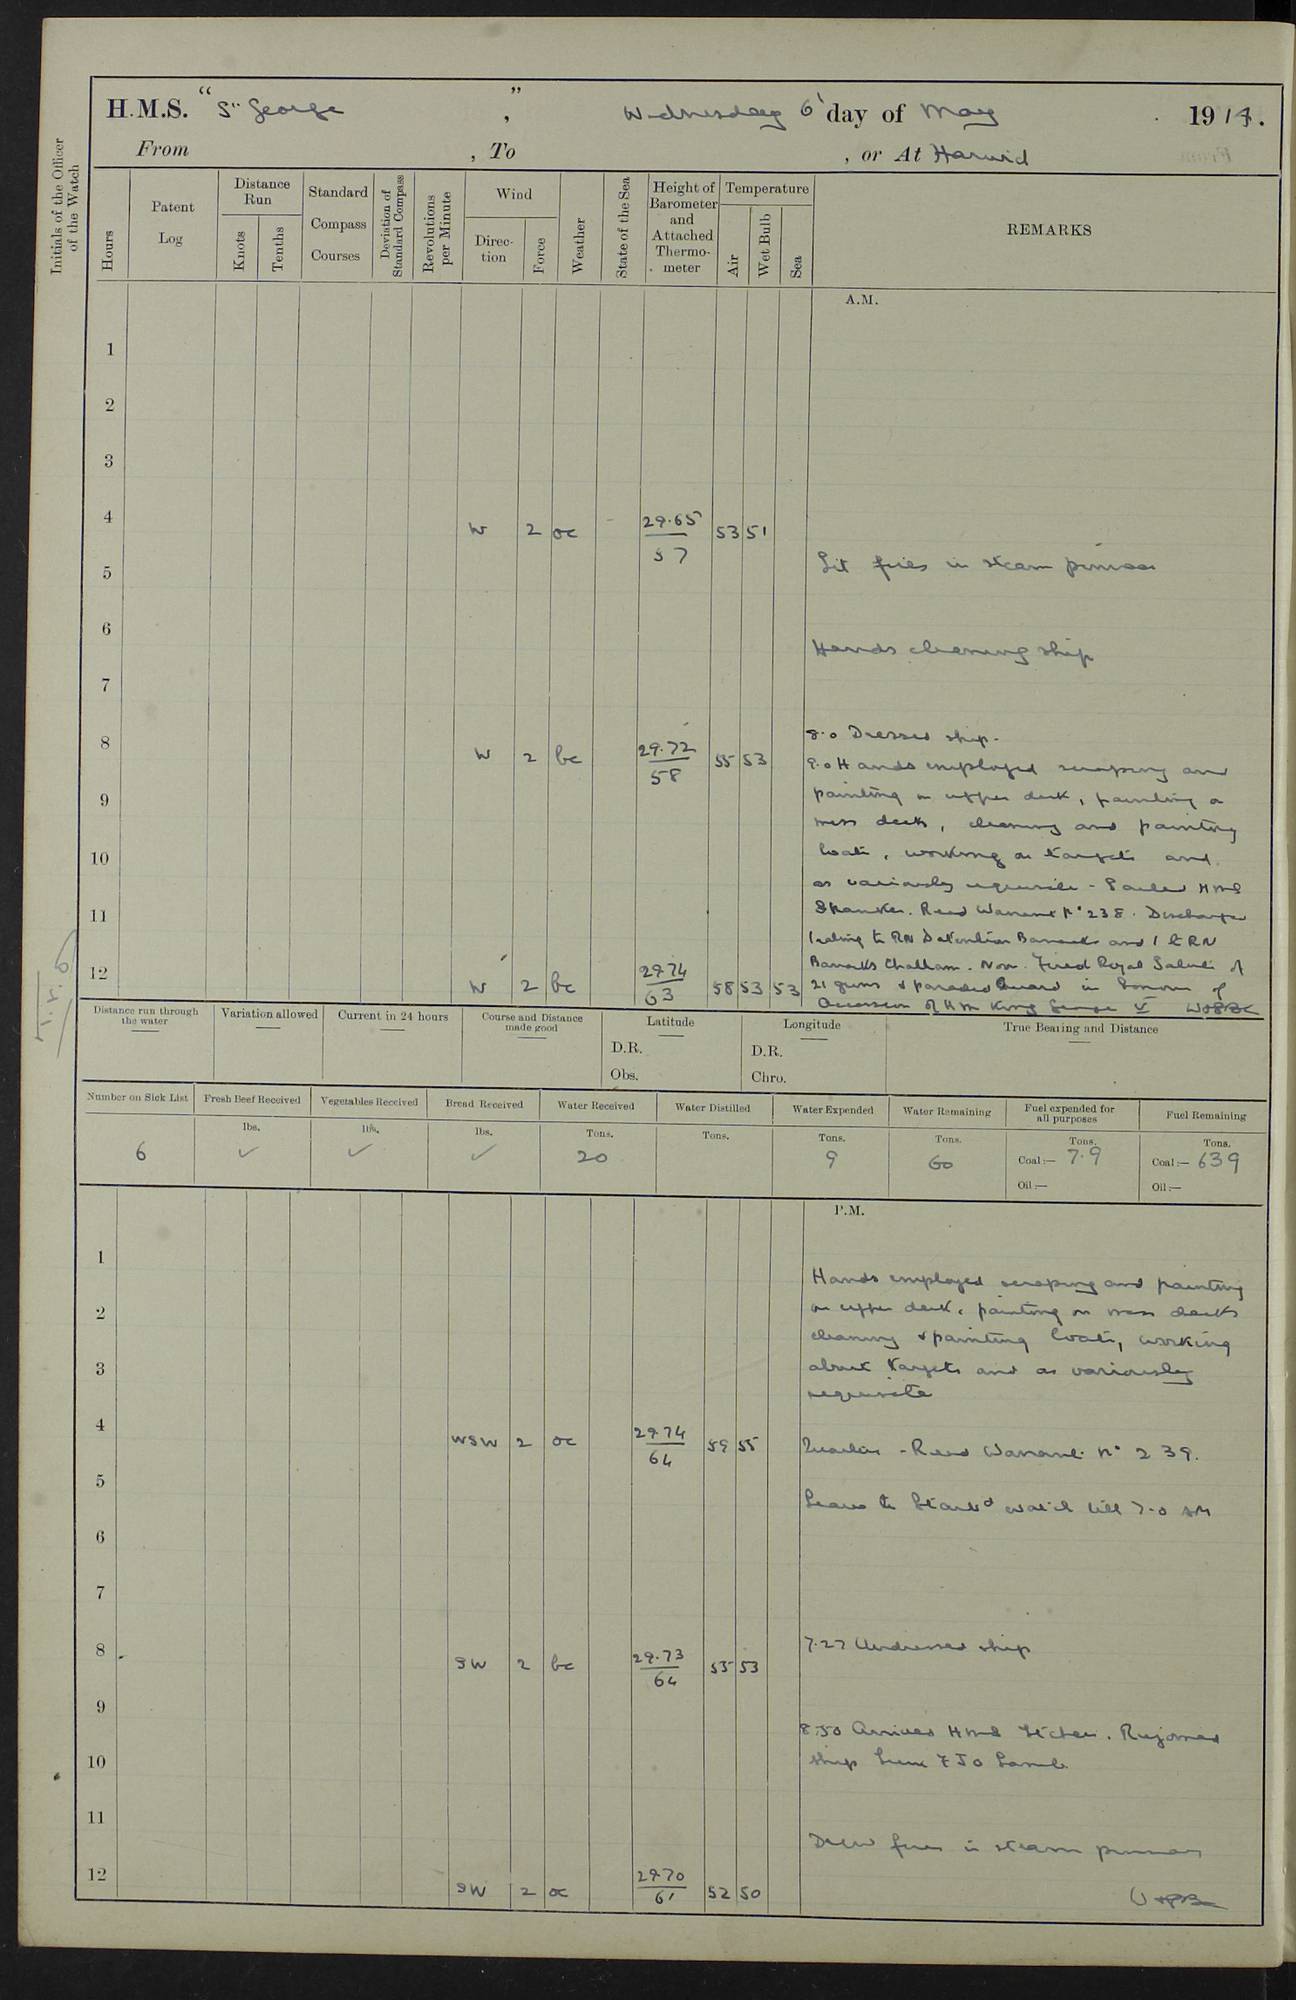 H.M.S. "St George", Wednesday 6 day of May 1914.
From , To , or At Harwich
Initials of the Officer of the Watch
Hours
Patent Log
Distance Run
Knots
Tenths
Standard Compass Courses
Deviation of Standard Compass
Revolutions per Minute
Wind
Direction
Force
Weather
State of the Sea
Height of Barometer and Attached Thermometer
Temperature
Air
Wet Bulb
Sea
REMARKS
A.M.
1
2
3
4 W 2 oc - 29.65 57 53 51
5 Lit fires in steam pinnace
6
Hands cleaning ship
7
8 W 2 bc 29.72 58 55 53
8.0 Dressed ship.
9.0 Hands employed scraping and
9 painting on upper deck, painting on
mess decks, cleaning and painting
10 boats, working on targets and
as variously requisite - Sailed HMS
11 Read Warrant No 238. Discharged
1 rating to RN Detention Barracks and 1 to RN
12 W 2 bc 29.74 63 58 53 53
Barracks Chatham. Noon. Fired Royal Salute of
21 guns & paraded Guard in honour of
Accession of HM King George V
T.r.o
Distance run through the water
Variation allowed
Current in 24 hours
Course and Distance made good
Latitude
D.R.
Obs.
Longitude
D.R.
Chro.
True Bearing and Distance
Number on Sick List 6
Fresh Beef Received lbs. ✓
Vegetables Received lbs. ✓
Bread Received lbs. ✓
Water Received Tons. 20
Water Distilled Tons.
Water Expended Tons. 9
Water Remaining Tons. 60
Fuel expended for all purposes Tons. Coal:— 7.9 Oil:—
Fuel Remaining Tons. Coal:— 639 Oil:—
P.M.
1
Hands employed scraping and painting
2 on upper deck, painting on mess decks
cleaning & painting boats, working
3 about targets and as variously
requisite
4 WSW 2 oc 29.74 64 59 55 Quarters - Read Warrant No 239.
5 Leave to Starbd watch till 7.0 AM
6
7
8 SW 2 bc 29.73 64 55 53 7.27 Undressed ship
9
8.50 Arrived HMS Itchen. Rejoined
10 ship Lieut
11
Drew fires in steam pinnace
12 SW 2 oc 29.70 61 52 50